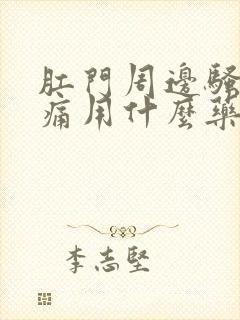 肛門周邊騷
痛用什麼藥
李志堅